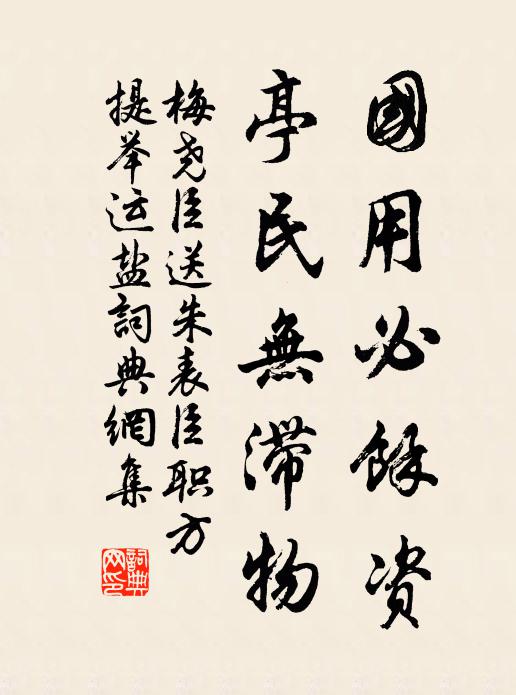 國用必餘资
亭民無滞物
梅尧臣送朱表臣职方
提举运盐詞典網集
詞典
网印